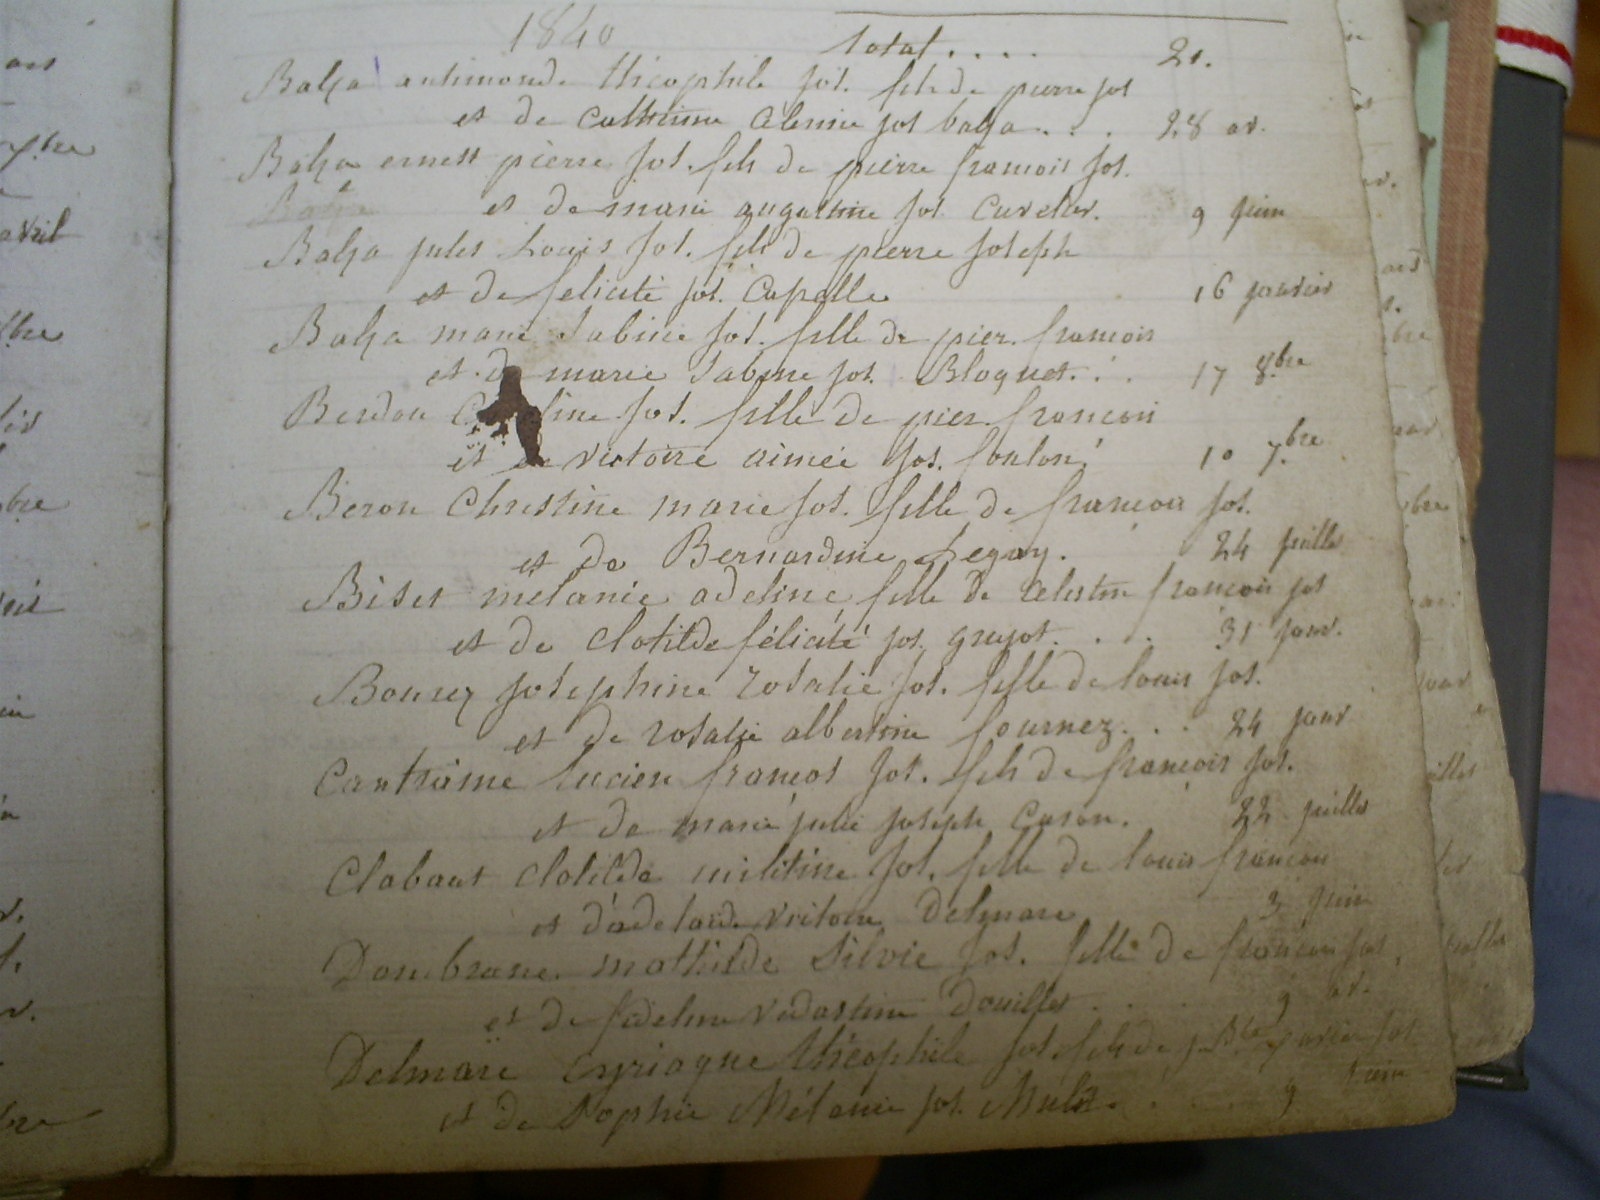 1840 total .... 21.
Balza antimonde théophile jos. fils de pierre jos
et de Catherine Célerine jos balza ... 28 av.
Balza ernest pierre jos. fils de pierre francois jos.
et de marie augustine jos. Cuvelier. 9 juin
Balza jules Louis jos. fils de pierre joseph
et de felicité jos. Capelle 16 janvier
Balza marie Sabine jos. fille de pier. francois
et de marie Sabine jos. Bloquet. . . 17 8.bre
Berdou jos. fille de pier. francois
et de victoire aimée jos. foulon. 10 7.bre
Beron Christine marie jos. fille de francois jos.
et de Bernardine Legay. 24 juillet
Biset mélanie adeline fille de celestin françois jos
et de Clotilde félicité jos. grujot. . . . 31 janv.
Bourez josephine rosalie jos. fille de louis jos.
et de rosalie albertine fournez . . . 24 janv
Cantraine lucien francois jos. fils de françois jos.
et de marie julie joseph Caron. 22 juillet
Clabaut Clotilde militine jos. fille de louis francois
et d'adelaïde victoire Delmare 3 juin
Dambrine. mathilde Silvie jos. fille de francois jos.
et de fideline védastine Douillet . . . 9 av.
Delmaré Cyriaque théophile jos fils de j. Bte xavier jos
et de Sophie Mélanie jos. . . . 9 juin